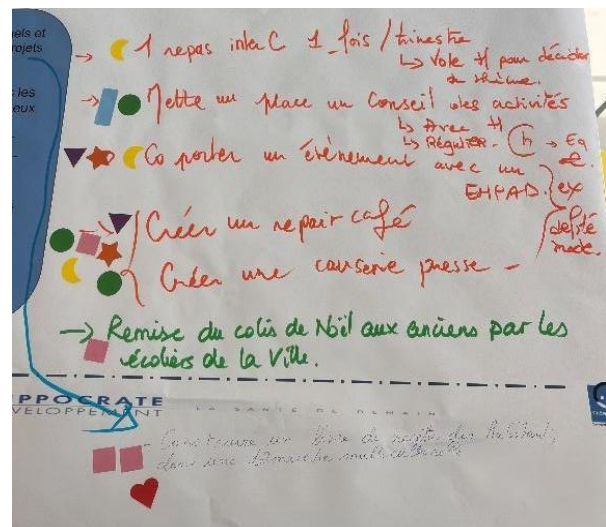 nels et
rojets
→ 1 repas interC 1 fois / trimestre
↳ Vote H pour décider
thème.
→ Mette un place un Conseil des activités
↳ Avec H
↳ Régulier. (h) → Eq
Co porter un évènement avec un
EHPAD. ex
défilé
mode.
Créer un repair café
Créer une causerie presse -
→ Remise du colis de Noël aux anciens par les
écoliers de la Ville.
PPOCRATE
VELOPPEMENT LA SANTÉ DE DEMAIN
- Construire un livre de recettes des habitants,
dans une démarche multiculturelle